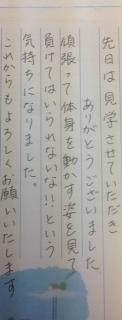 先日は見学させていただき
ありがとうございました
頑張って体身を動かす姿を見て
負けてはいられないな!!という
気持ちになりました。
これからもよろしくお願いいたします